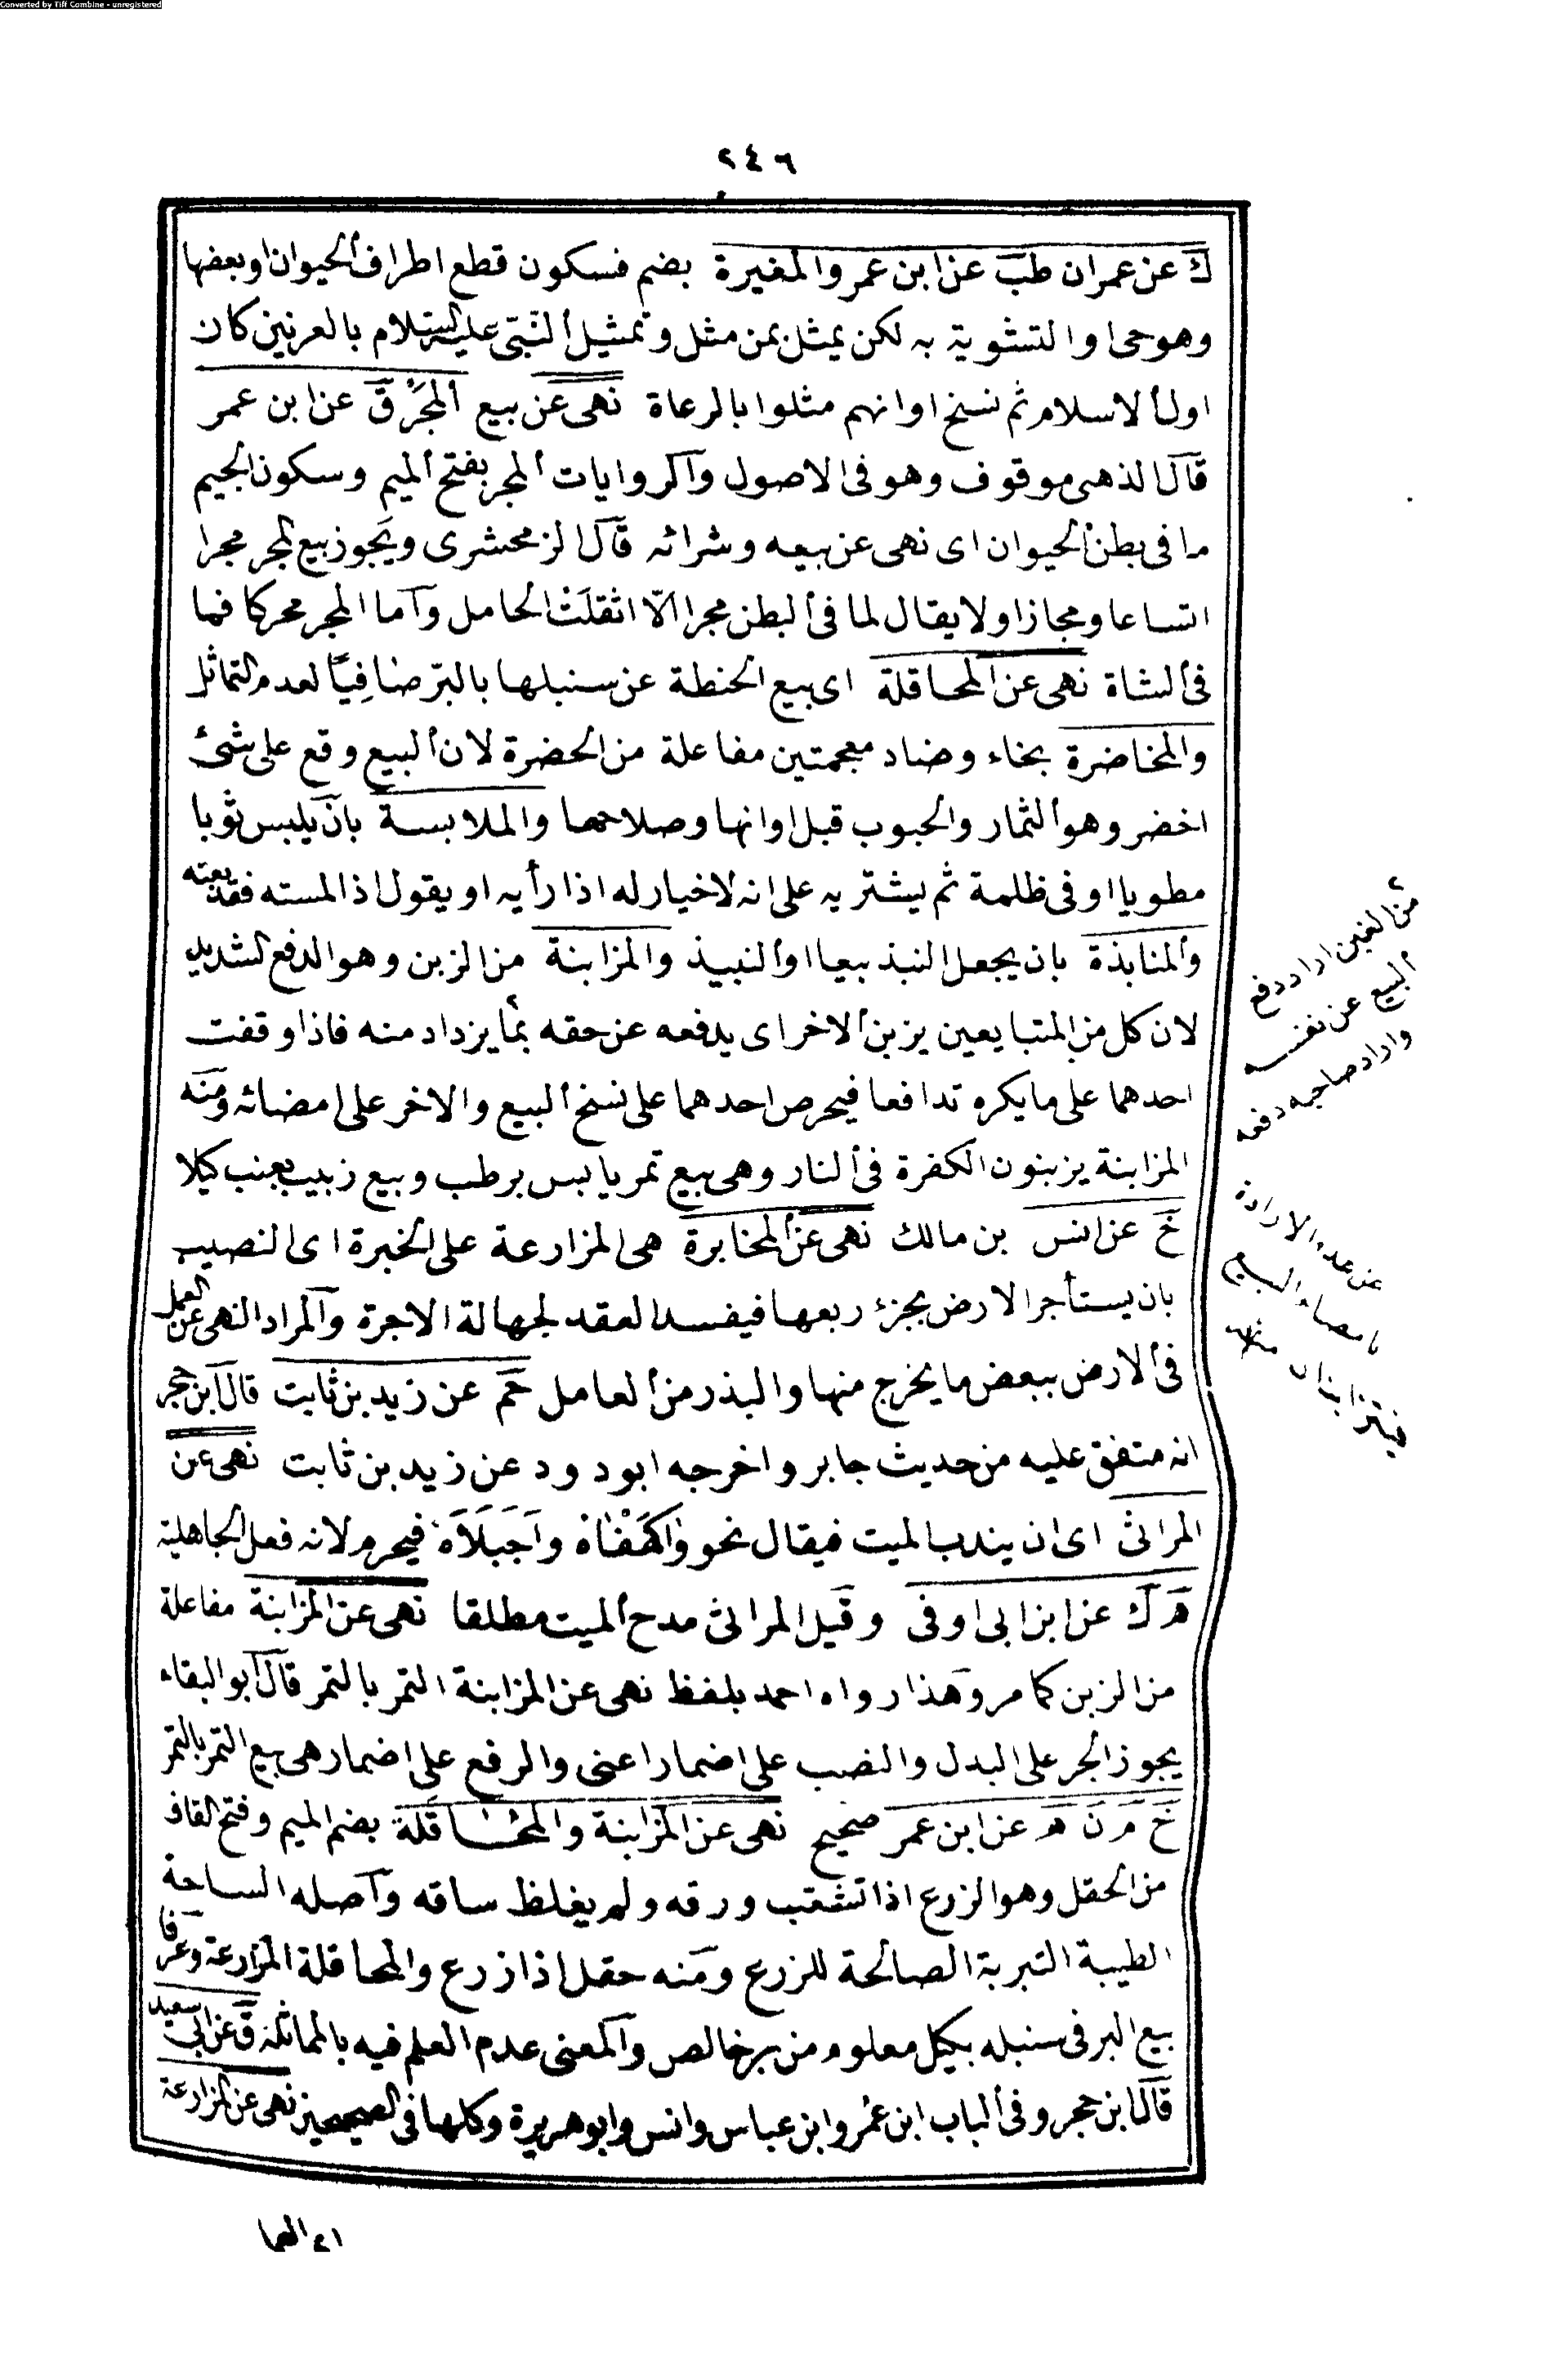 Converted by Tiff Combine - unregistered
٢٤٦
ك عن عمران طب عن ابن عمر والمغيرة بضم فسكون قطع اطراف الحيوان او بعضها
وهو حى او التشوية به لكن يمثل بمن مثل وتمثيل النبى عليه السلام بالعرنيين كان
اول الاسلام ثم نسخ او انهم مثلوا بالرعاة نهى عن بيع المجر ق عن ابن عمر
قال الذهبى موقوف وهو فى الاصول واكر وايات المجر بفتح الميم وسكون الجيم
ما فى بطن الحيوان اى نهى عن بيعه وشرائه قال الزمحشرى ويجوز بيع المجر مجرا
اتساعا ومجازا ولا يقال لما فى البطن مجرا الا اثقلت الحامل واما المجر محركا فما
فى الشاة نهى عن المحاقلة اى بيع الحنطة عن سنبلها بالبر صافيا لعدم التماثل
والمخاضرة بخاء وضاد معجمتين مفاعلة من الحضرة لان البيع وقع على شئ
اخضر وهو الثمار والحبوب قبل اوانها وصلاحها والملابسة بان يلبس ثوبا
مطويا او فى ظلمة ثم يشتريه على انه لا خيار له اذا رأيه او يقول اذا لمسته فقد بعته
والمنابذة بان يجعل النبذ بيعا او النبيذ والمزابنة من الزبن وهو الدفع الشديد
لان كل من المتبايعين يزبن الاخر اى يدفعه عن حقه بما يزداد منه فاذا وقفت
احدهما على ما يكره تدافعا فيحرص احدهما على نسخ البيع والاخر على امضائه ومنه
المزابنة يزبنون الكفرة فى النار وهى بيع تمر يابس برطب وبيع زبيب بعنب كيلا
خ عن انس بن مالك نهى عن المخابرة هى المزارعة على الخبرة اى النصيب
بان يستأجر الارض بجزء ربعها فيفسد العقد لجهالة الاجرة والمراد النهى عن العمل
فى الارض ببعض ما يخرج منها والبذر من العامل حم عن زيد بن ثابت قال ابن حجر
انه متفق عليه من حديث جابر واخرجه ابو دود عن زيد بن ثابت نهى عن
المراثى اى ان يندب الميت فيقال نحو واكهفاه واجبلاه فيحرم لانه فعل الجاهلية
ه ك عن ابن ابى اوفى وقيل المراثى مدح الميت مطلقا نهى عن المزابنة مفاعلة
من الزبن كما مر وهذا رواه احمد بلفظ نهى عن المزابنة التمر بالتمر قال ابو البقاء
يجوز الجر على البدل والنصب على اضمار اعنى والرفع على اضمار هى بيع التمر بالتمر
خ م ن ه عن ابن عمر صحيح نهى عن المزابنة والمحاقلة بضم الميم وفتح القاف
من الحقل وهو الزرع اذا تشعب ورقه ولم يغلظ ساقه واصله الساحة
الطيبة التربة الصالحة للزرع ومنه حقل اذا زرع والمحاقلة المزارعة وعرفا
بيع البر فى سنبله بكيل معلوم من بر خالص والمعنى عدم العلم فيه بالمماثلة ق عن ابى سعيد
قال ابن حجر وفى الباب ابن عمر وابن عباس وانس وابو هريرة وكلها فى الصحيحين نهى عن المزارعة
من الغبن اراد دفع
البيع عن نفسه
واراد صاحبه دفعه
عن هذه الارادة
بامضاء البيع
فيتزابنان